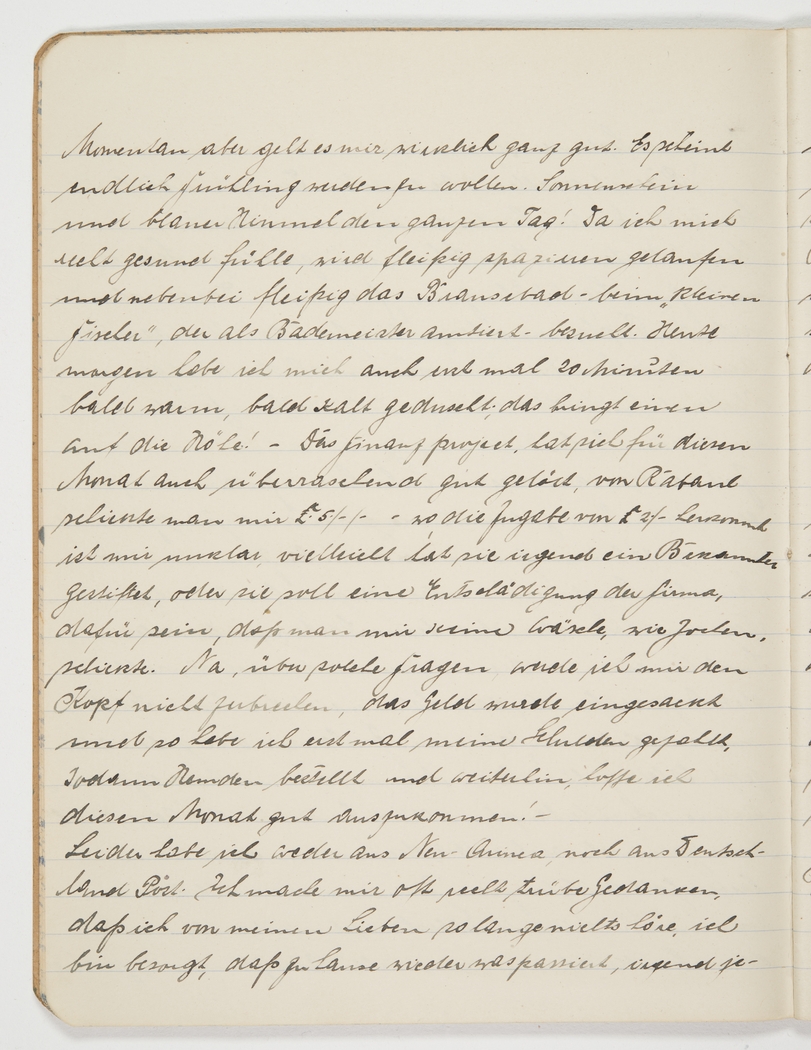 Momentan aber geht es mir wirklich ganz gut. Es scheint
endlich Frühling werden zu wollen. Sonnenschein
und blauer Himmel den ganzen Tag! Da ich mich
recht gesund fühle, wird fleißig spazieren gelaufen
und nebenbei fleißig das Brausebad - beim „kleinen
Fischer", der als Bademeister amtiert - besucht. Heute
morgen habe ich mich auch erst mal 20 Minuten
bald warm, bald kalt geduscht, das bringt einen
auf die Höhe! - Das Finanzprojekt, hat sich für diesen
Monat auch überraschend gut gelöst, von Rabaul
schickte man mir £.5/-/- - wo die Zugabe von £ 2/- herkommt
ist mir unklar, vielleicht hat sie irgend ein Bekannter
gestiftet, oder sie soll eine Entschädigung der Firma,
dafür sein, daß man mir keine Wäsche, wie Jochen,
schickte. Na, über solche Fragen werde ich mir den
Kopf nicht zerbrechen, das Geld wurde eingesackt
und so habe ich erst mal meine Schulden gezahlt,
sodann Hemden bestellt und weiterhin, hoffe ich
diesen Monat gut auszukommen! -
Leider habe ich weder aus Neu-Guinea, noch aus Deutsch-
land Post. Ich mache mir oft recht trübe Gedanken,
daß ich von meinen Lieben so lange nichts höre, ich
bin besorgt, daß zu Hause wieder was passiert, irgend je-